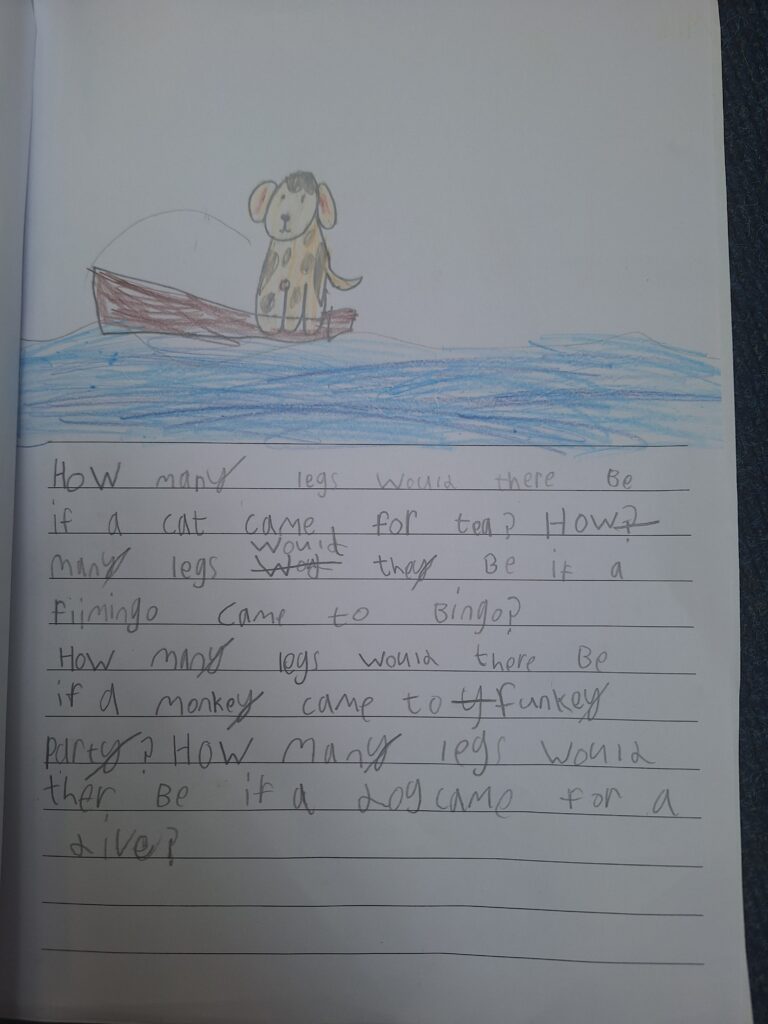 How many legs would there Be
if a cat came for tea? How?
many legs would they Be if a
Fiimingo came to Bingo?
How many legs would there Be
if a monkey came to funkey
party? How many legs would
ther Be if a dog came for a
dive?